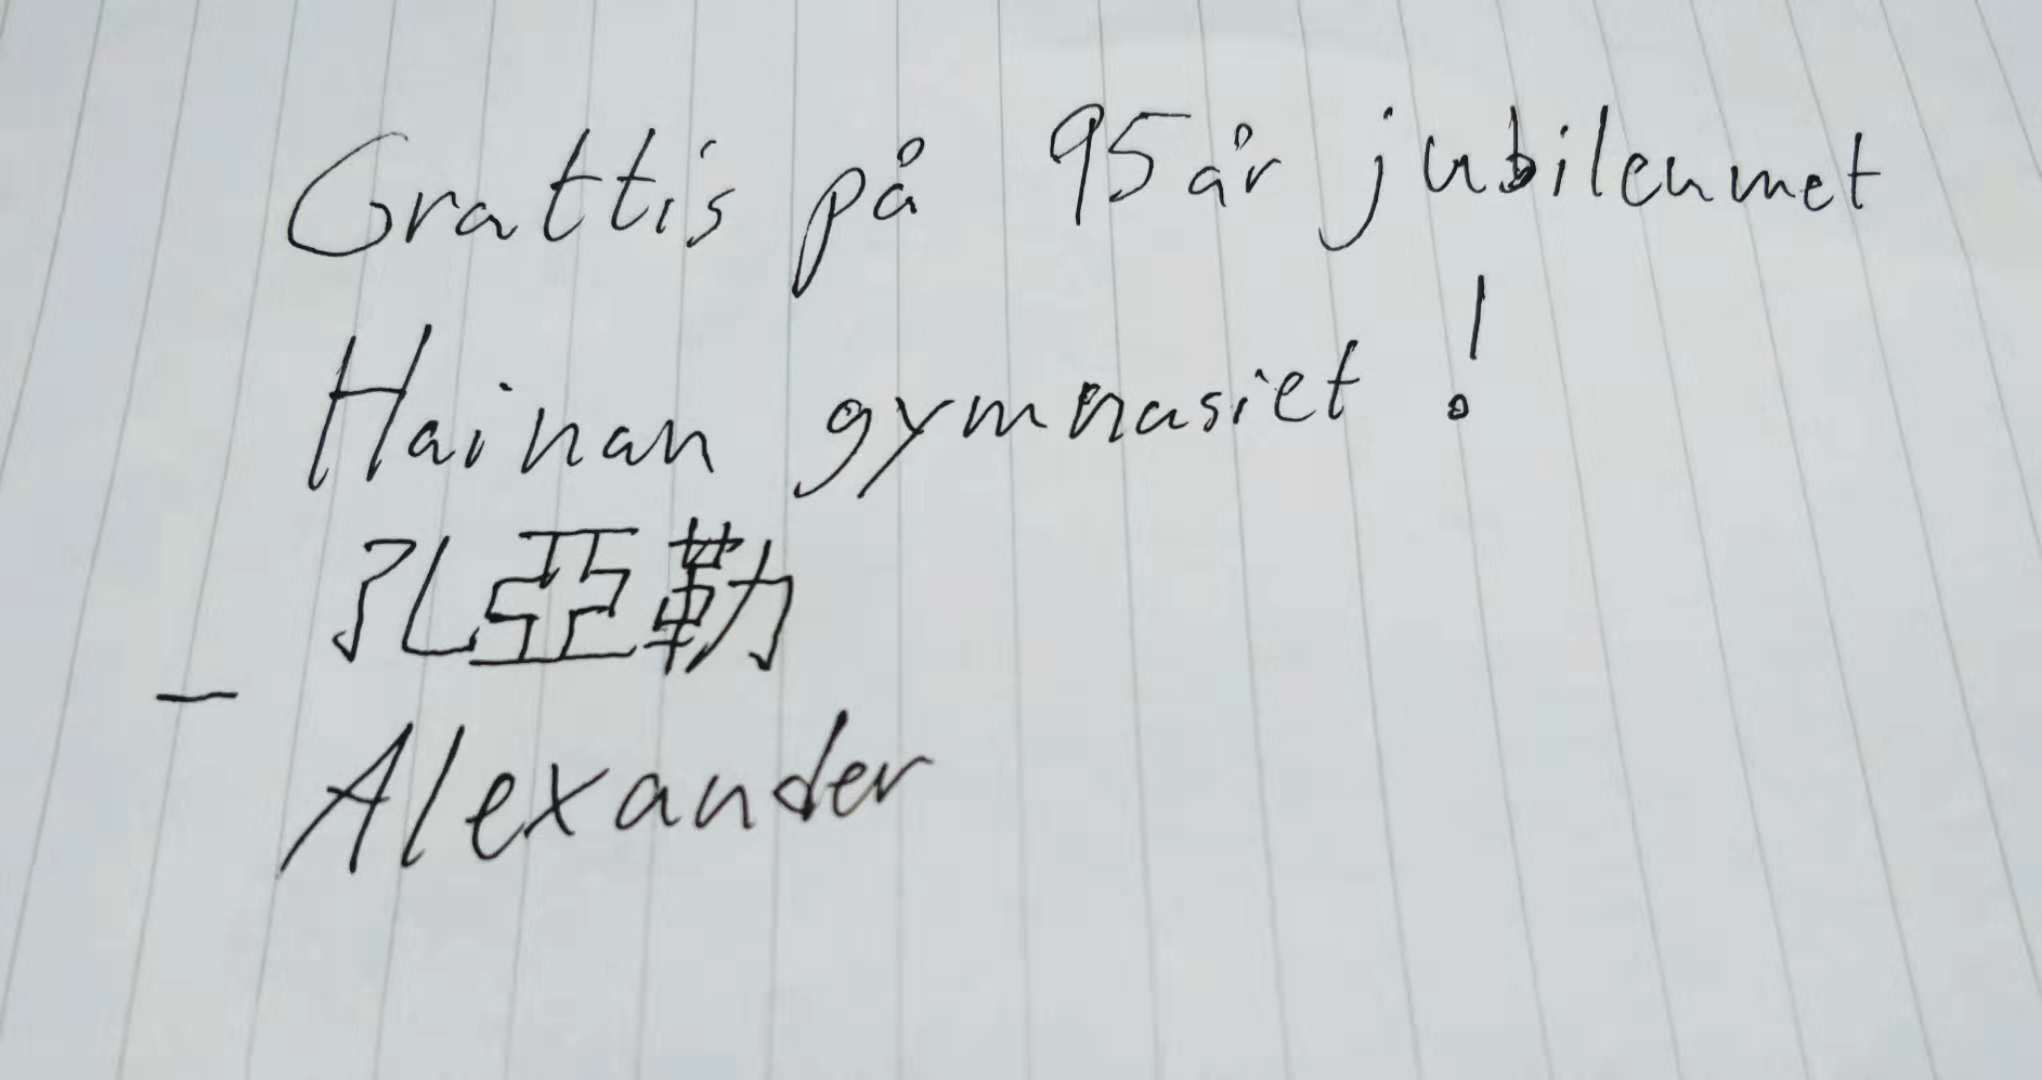 Grattis på 95 år jubileumet
Hainan gymnasiet!
孔亞勒
— Alexander